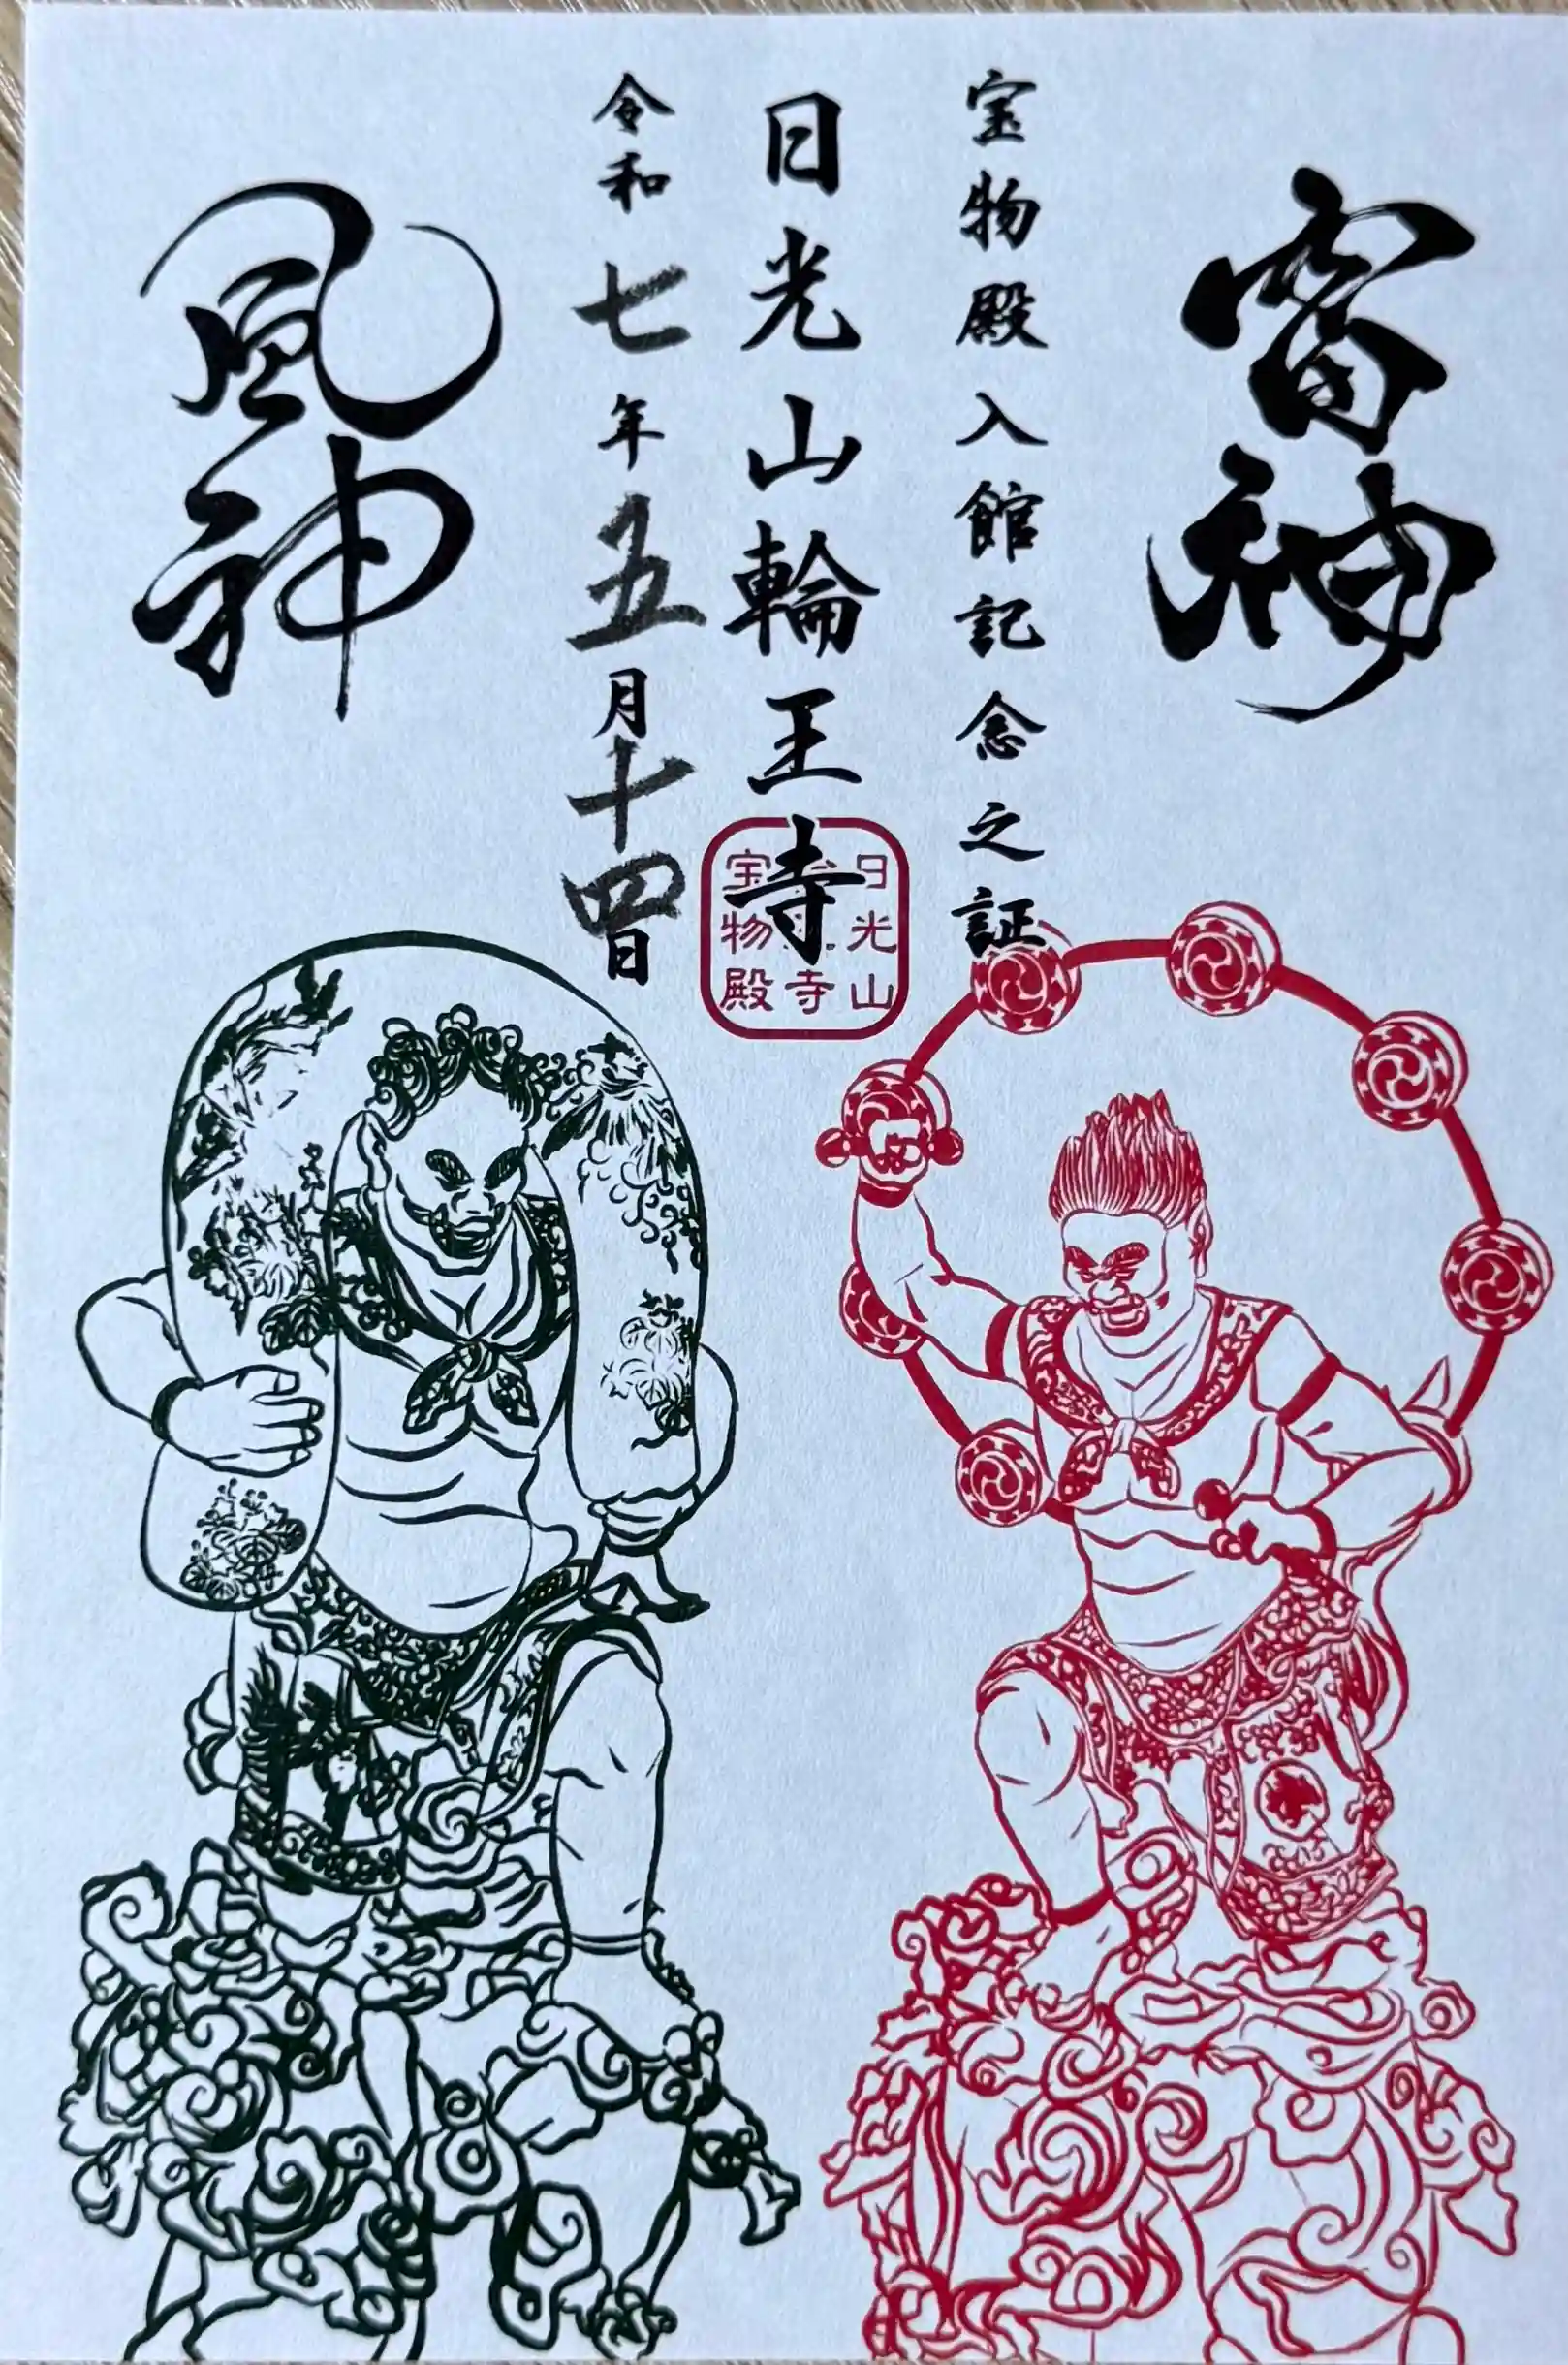 雷神
宝物殿入館記念之証
日光山輪王寺
令和七年五月十四日
風神
日光山
寺
宝物殿